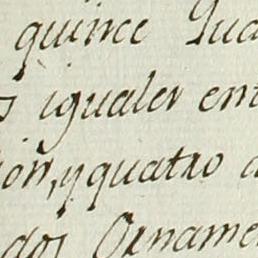 quince Qua
s iguales ent
ion, y quatro d
dos Orname